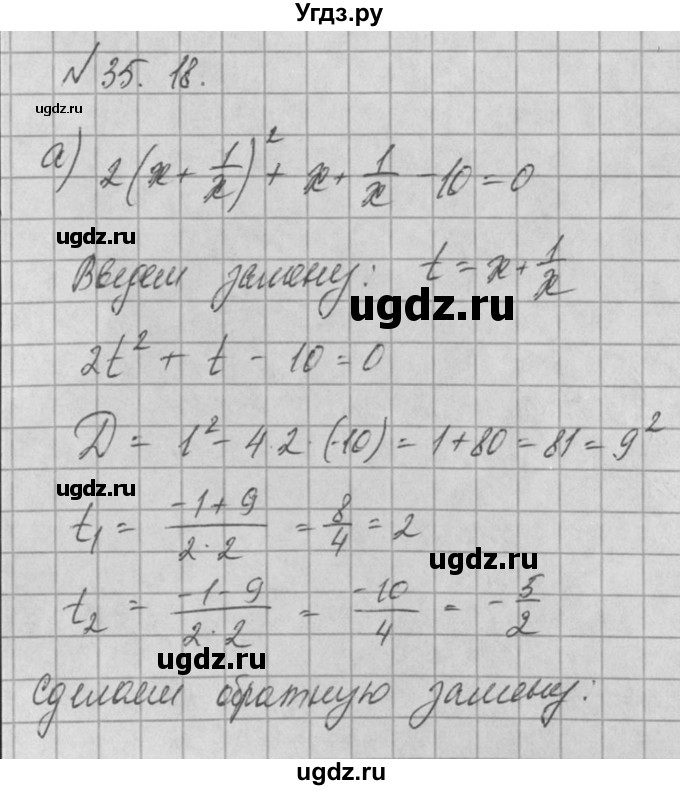 Угдз.ру
№ 35. 18.
ugdz.ru
а) 2(x + 1/x)² + x + 1/x - 10 = 0
ugdz.ru
Введем замену: t = x + 1/x
ugdz.ru
2t² + t - 10 = 0
Д = 1² - 4·2·(-10) = 1 + 80 = 81 = 9²
ugdz.ru
t₁ = (-1 + 9)/(2·2) = 8/4 = 2
ugdz.ru
t₂ = (-1 - 9)/(2·2) = -10/4 = -5/2
ugdz.ru
Сделаем обратную замену:
ugdz.ru